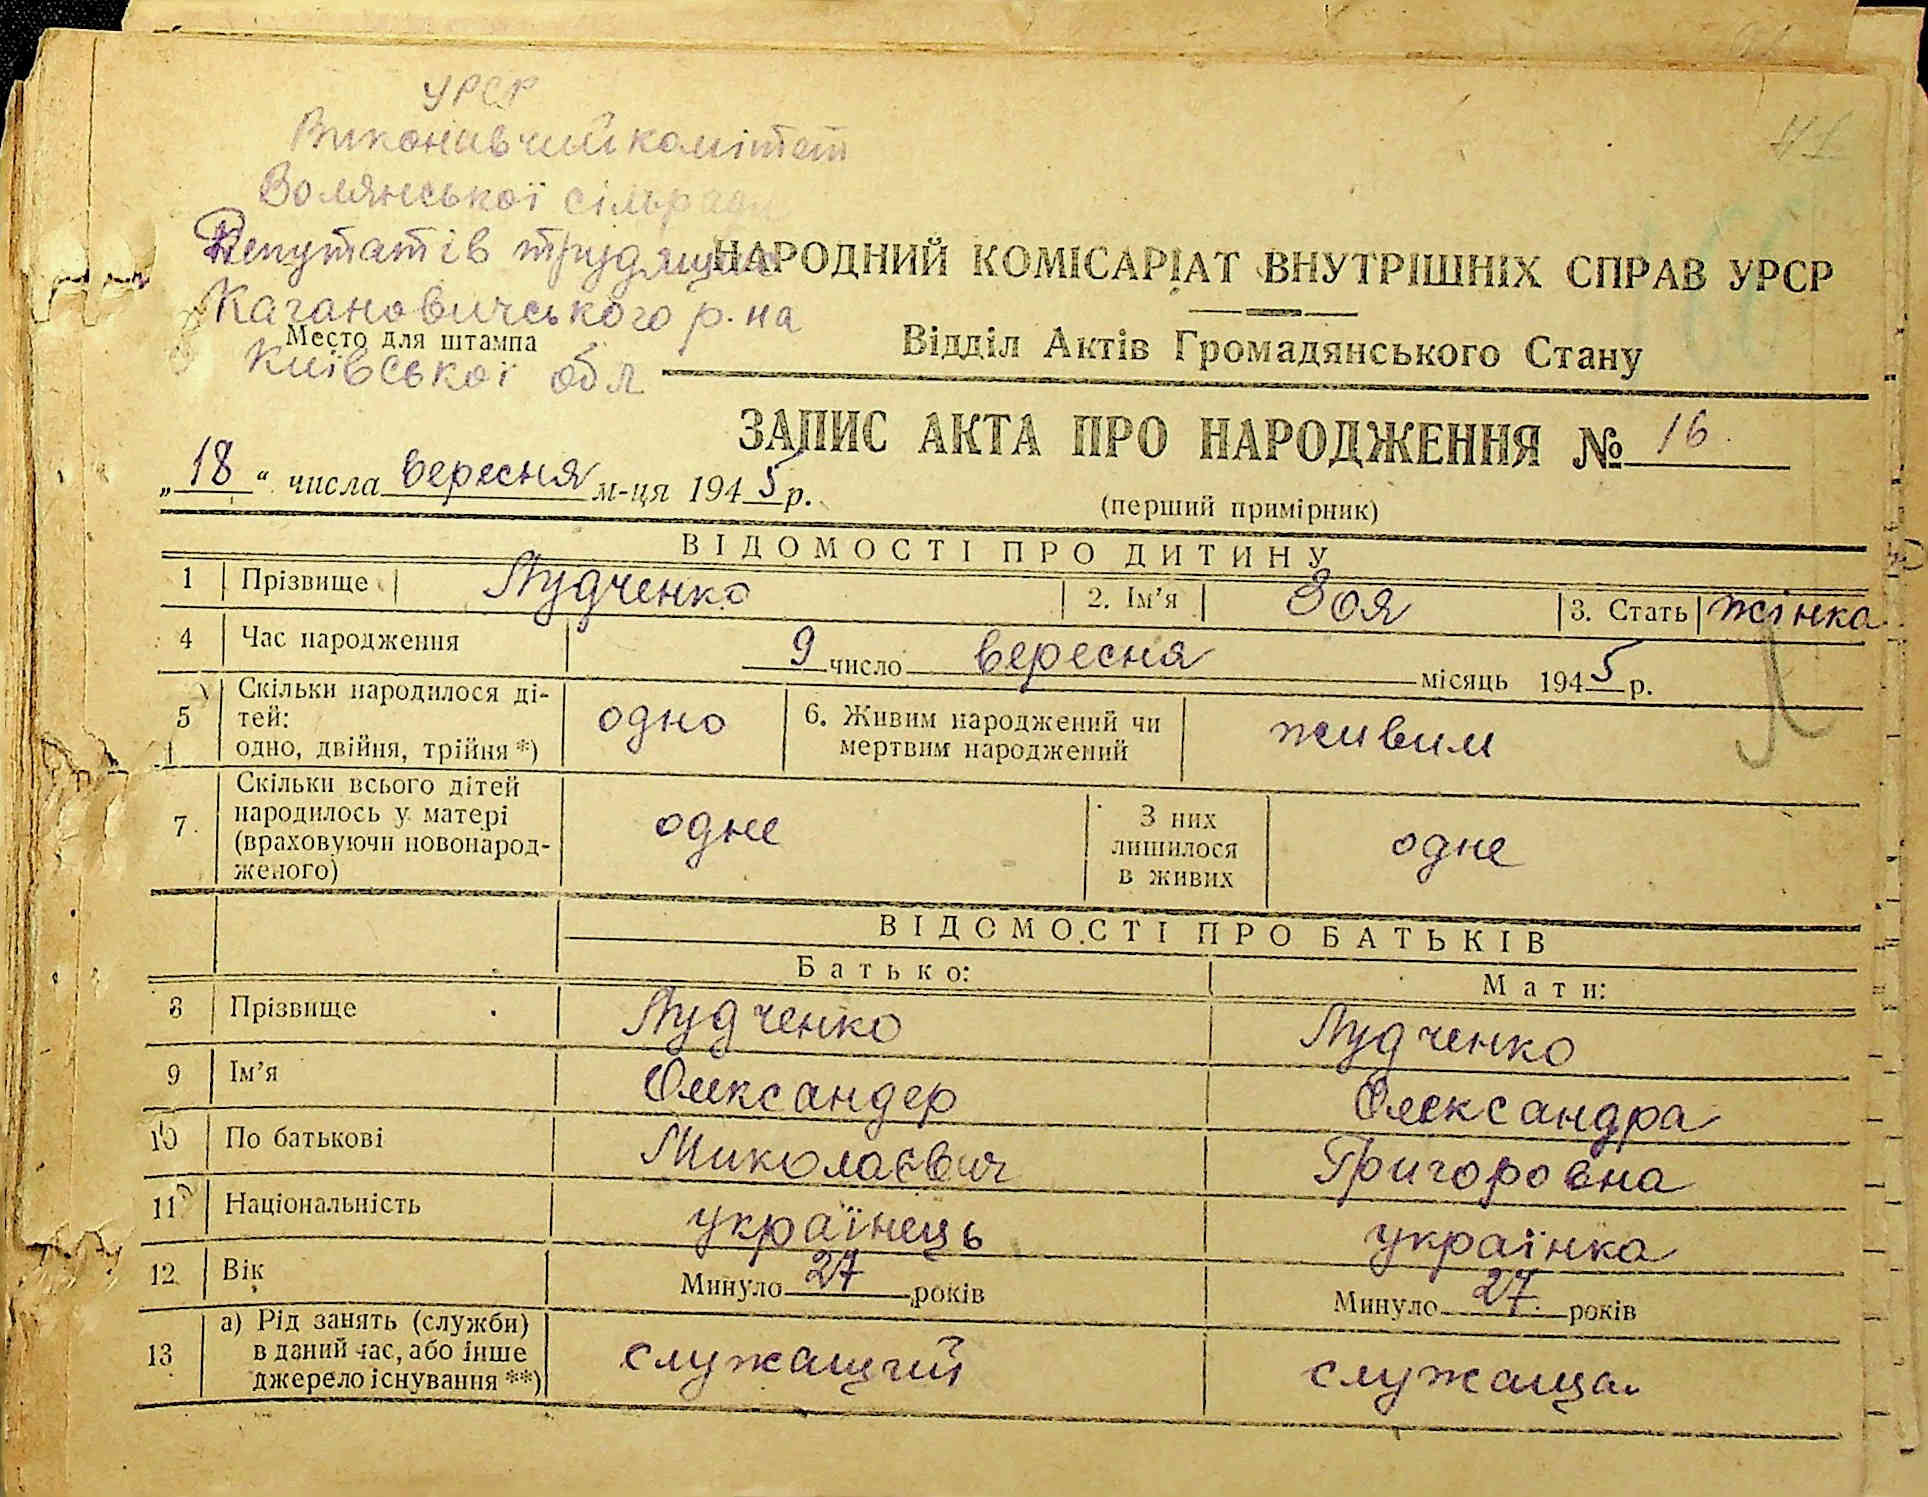 УРСР
Виконавчий комітет
Волянської сільради
Депутатів трудящих
Кагановичського р-на
Київської обл
Место для штампа
НАРОДНИЙ КОМІСАРІАТ ВНУТРІШНІХ СПРАВ УРСР
Відділ Актів Громадянського Стану
ЗАПИС АКТА ПРО НАРОДЖЕННЯ № 16.
„18“ числа вересня м-ця 1945 р.
(перший примірник)
ВІДОМОСТІ ПРО ДИТИНУ
1 Прізвище Лудченко 2. Ім'я Зоя 3. Стать жінка
4 Час народження 9 число вересня місяць 1945 р.
5 Скільки народилося ді-
тей:
одно, двійня, трійня *) одно 6. Живим народжений чи
мертвим народжений живим
7. Скільки всього дітей
народилось у матері
(враховуючи новонарод-
женого) одне З них
лишилося
в живих одне
ВІДОМОСТІ ПРО БАТЬКІВ
Батько: Мати:
8 Прізвище Лудченко Лудченко
9 Ім'я Олександер Олександра
10 По батькові Миколаєвич Григоровна
11 Національність українець українка
12 Вік Минуло 27 років Минуло 27. років
13 а) Рід занять (служби)
в даний час, або інше
джерело існування **) служащий служаща